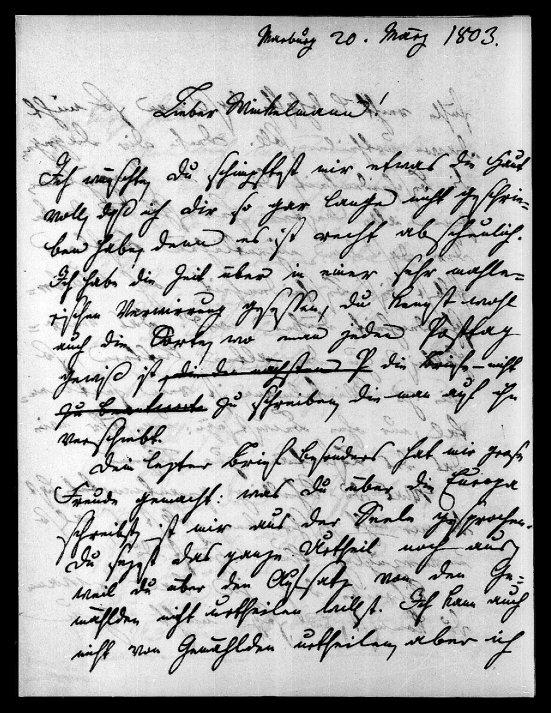 Marburg 20. März 1803.
Lieber Winkelmann!
Ich wünschte, du schimpftest mir etwas die Haut
voll, daß ich dir so gar lange nicht geschrie-
ben habe, denn es ist recht abscheulich.
Ich habe die Zeit über in einer sehr mahle-
rischen Verwirrung gesessen, du kennst wohl
auch die Sorte, wo man jeden Posttag
gewiß ist, die den nächsten P die Briefe nicht
zu zu schreiben, die man auf ihn
verschiebt.
Dein lezter Brief besonders hat mir große
Freude gemacht: was du über die Europa
schreibst, ist mir aus der Seele gesprochen.
Du sezst das ganze Urtheil noch aus,
weil du über den Aufsatz von den Ge-
mählden nicht urtheilen willst. Ich kann auch
nicht von Gemählden urtheilen, aber ich